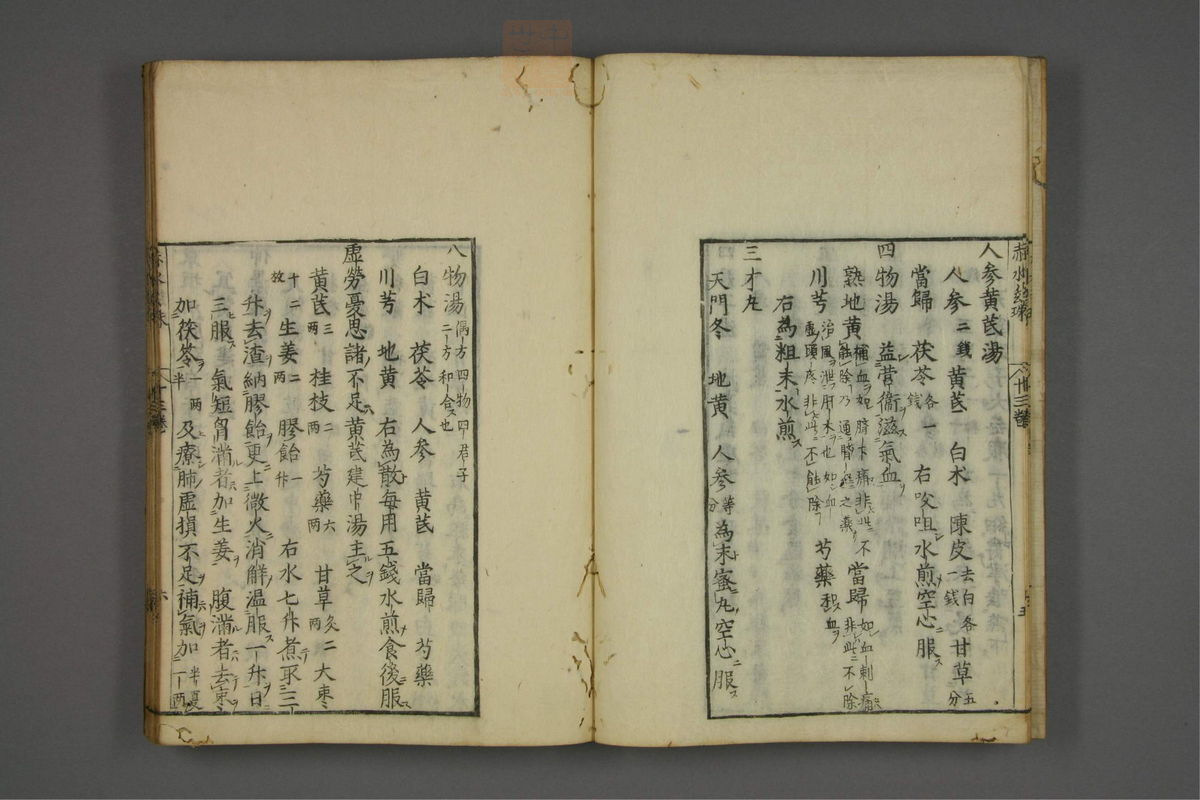 赤水玄珠
卅三巻
五
人参黄芪湯
人参二錢 黄芪 白术 陳皮去白各一錢 甘草五分
當歸 茯苓各一錢 右㕮咀水煎空心服
四物湯 益營衞滋氣血
熟地黄補血如臍下痛非此不能除乃通腎經之薬 當歸如血刺痛非此不除
川芎治風泄肝木也如血虚頭疼非此不能除 芍藥和血
右為粗末水煎
三才丸
天門冬 地黄 人参等分 為末蜜丸空心服
八物湯偶方四物四君子二方和合也
白术 茯苓 人参 黄芪 當歸 芍藥
川芎 地黄 右為散毎用五錢水煎食後服
虚勞憂思諸不足黄芪建中湯主之
黄芪三兩 桂枝二兩 芍藥六兩 甘草炙二兩 大枣
十二枚 生姜二兩 膠飴一升 右水七升煮取三
升去渣納膠飴更上微火消解温服一升日
三服 氣短胷滿者加生姜 腹滿者去枣
加茯苓一兩半 及療肺虚損不足補氣加半夏二兩
赤水玄珠
卅三巻
六